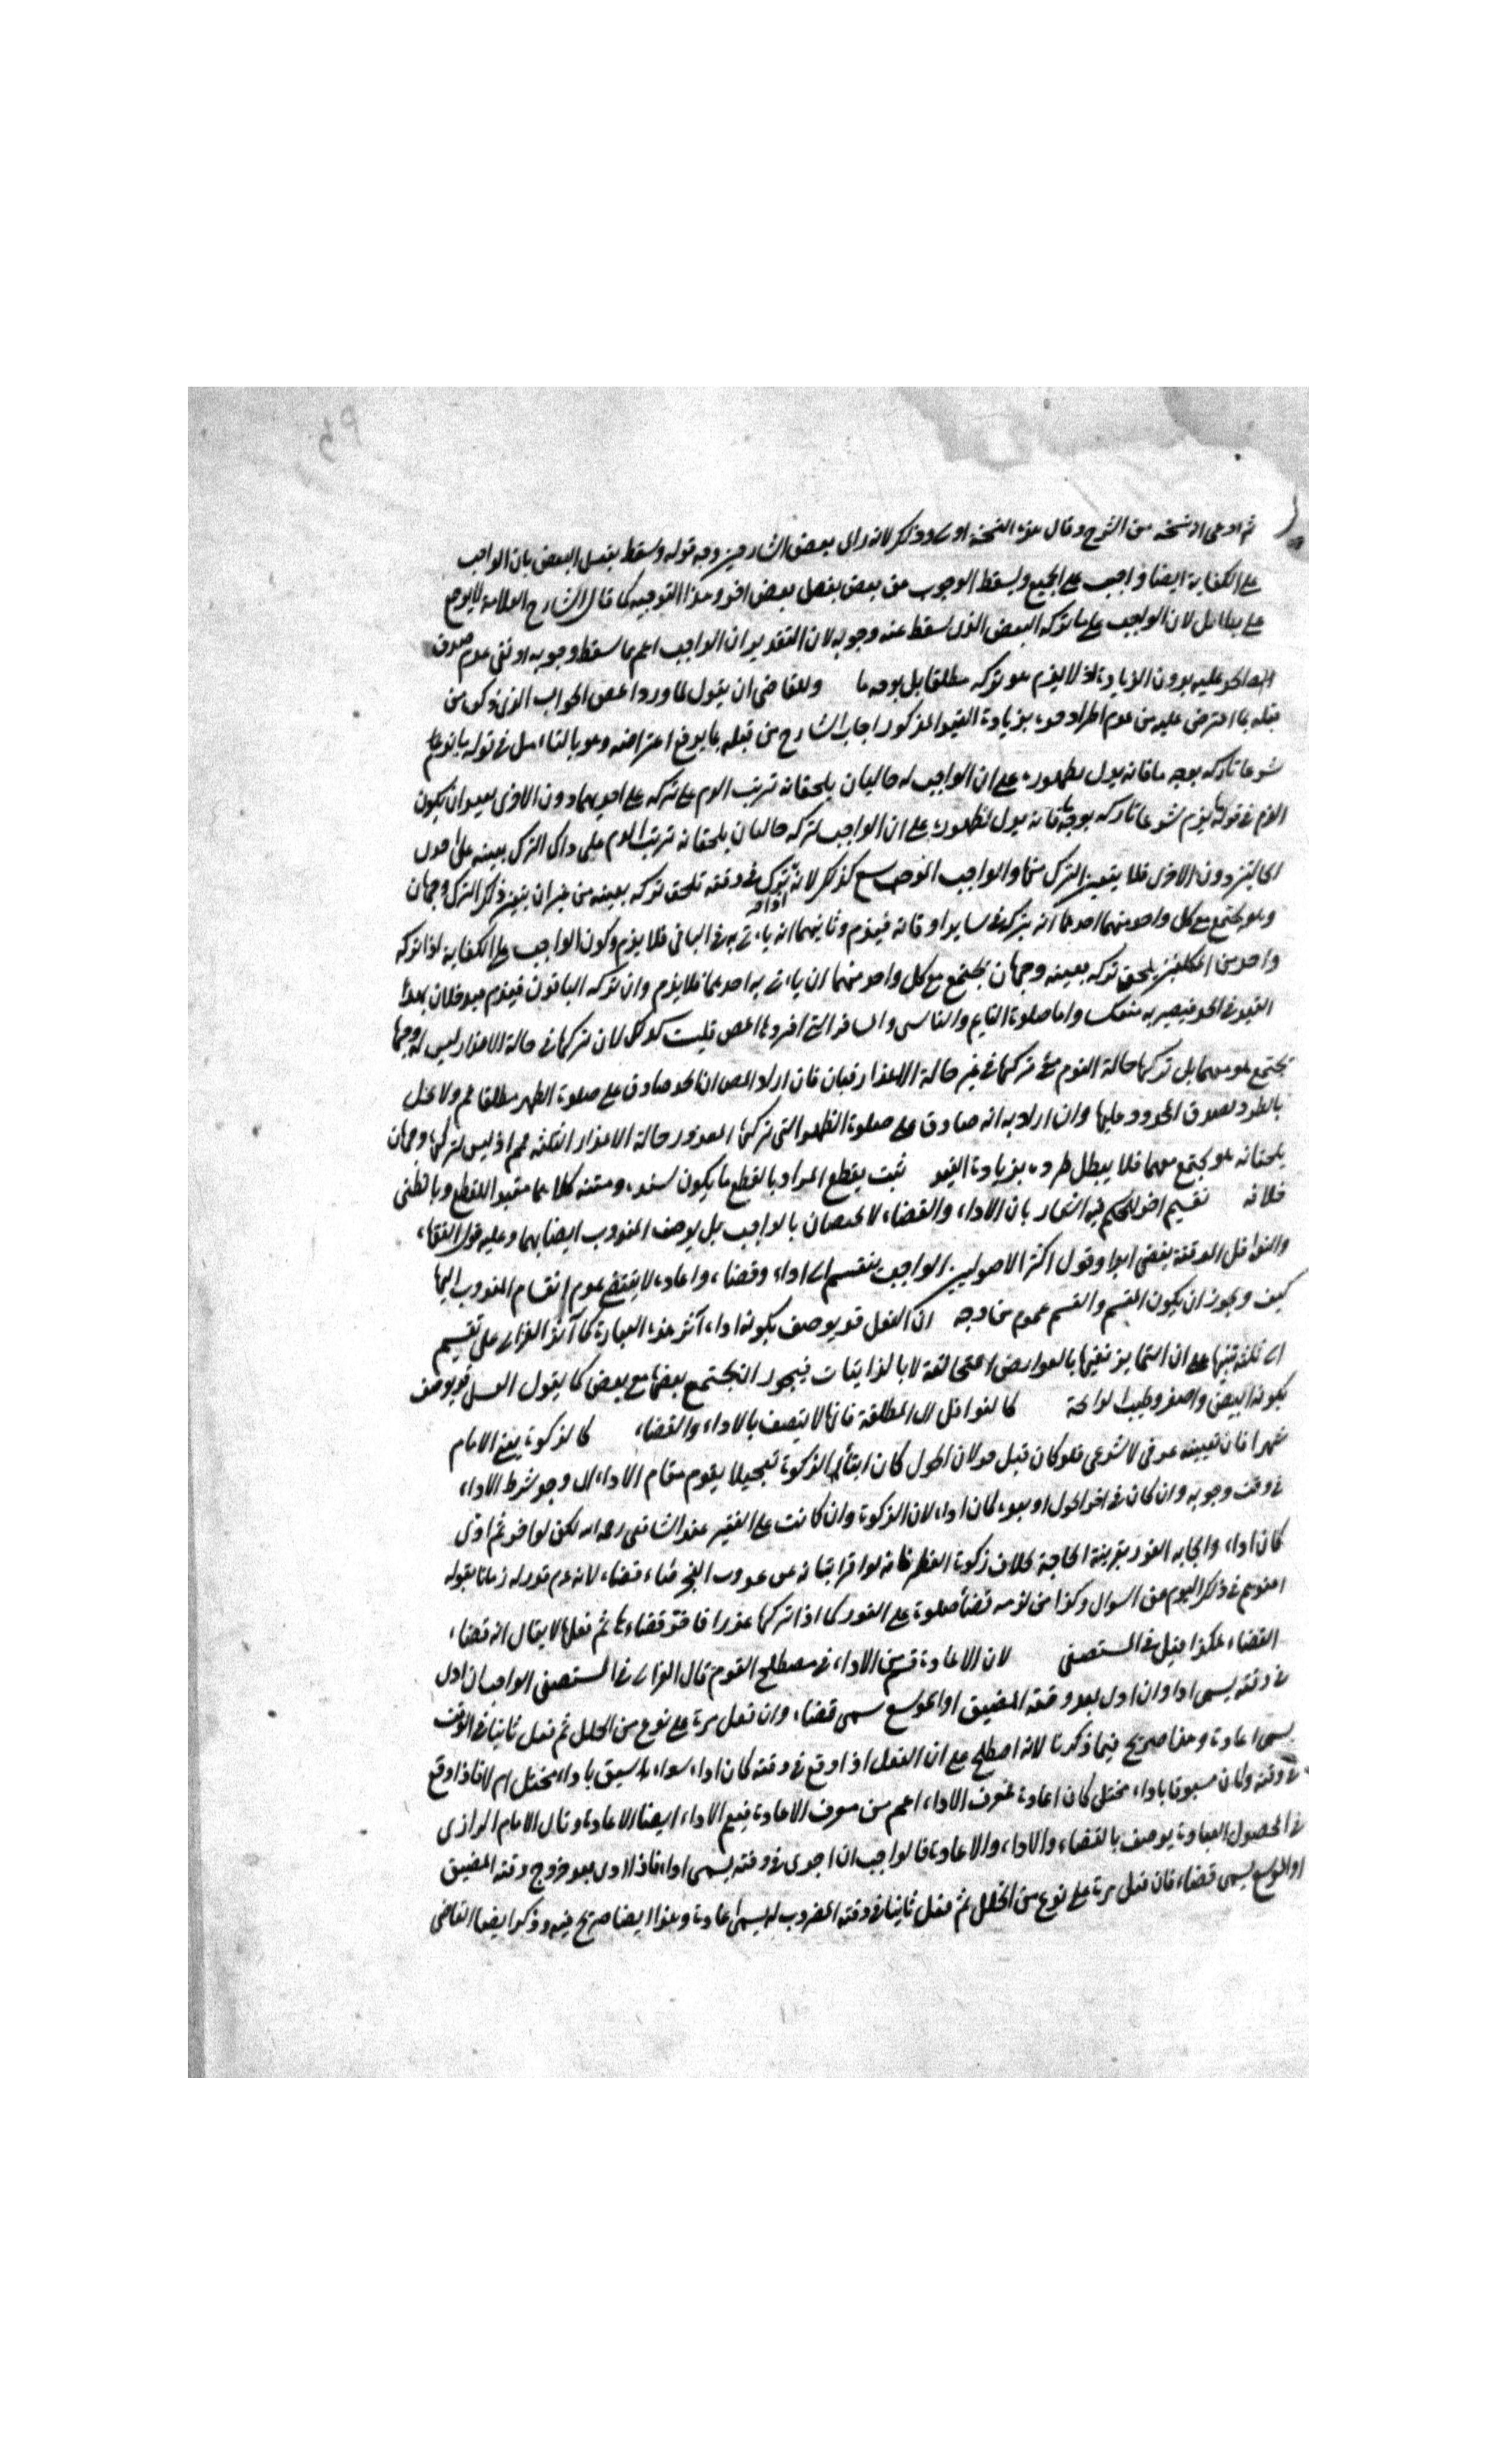 ثم ادعى ان نسخه من الشرح وقال هذه النسخة اولى وذلك لانه راى بعض الشارحين وجه قوله وسقط بفعل البعض بان الواجب
على الكفاية ايضا واجب على الجميع ويسقط الوجوب عن بعض بفعل بعض اخر وهذا التوجيه كما قال الشارح العلامة لا يرجع
على بطائل لان الواجب على ما تركه البعض الذى سقط عنه وجوبه لان التقدير ان الواجب اعم مما سقط وجوبه او نفى عدم صدق
الحد عليه بدون الزيادة اذ لا يلزم هو تركه مطلقا بل بوجه ما وللقاضى ان يقول لما ورد المص الجواب الذى ذكر من
قبله بما اعترض عليه من عدم اطراد حده بزيادة القيد المذكور اجاب الشارح من قبله بما يدفع اعتراضه وهو بالتامل فى قوله ما يذم
شرعا تاركه بوجه ما فانه يدل بظهوره على ان الواجب له حالتان يلحقانه ترتب الذم على تركه على احديهما دون الاخرى بعيد ان يكون
الذم فى قوله يذم شرعا تاركه بوجه ما فانه يدل بظهوره على ان الواجب لتركه حالتان يلحقانه ترتب الذم على ذاك الترك بعينه على احدى
الحالتين دون الاخرى فلا يتعين الترك منها والواجب الموسع كذلك لانه يترك فى وقته تلحق تركه بعينه من غير ان يتغير ذلك الترك وجهان
وهو يجتمع مع كل واحد منهما احدهما انه يتركه فى ساير اوقاته فيذم وثانيهما انه ياتى به فى الباقى فلا يذم وكون الواجب على الكفاية لذا تركه
واحد من المكلفين يلحق تركه بعينه وجهان يجتمع مع كل واحد منهما ان ياتى به احدهما فلا يذم وان تركه الباقون فيذم فلان بهذا
القيد فى الحد فيصير به منعكسا واما صلوة النايم والناسى والمسافر التى افردها المص فليست كذلك لان تركها فى حالة الاعذار ليس له وجها
يجتمع هو معهما بل تركها حالة النوم مع تركها فى غير حالة الاعذار فبان فان اراد المص ان الحد صادق على صلوة الظهر مطلقا نعم ولا يخل
بالطرد لصدق المحدود عليها وان اراد به انه صادق على صلوة الظهر التى تركها المعذور حالة الاعذار الثلثة فمم اذ ليس لتركها وجهان
يلحقانه هو يجتمع معهما فلا يبطل طرده بزيادة القيد ثبت بقطع المراد بالقطع ما يكون سنده ومتنه كلاهما مفيد اللقطع وبالظنى
فلانه تقسيم اخر للحكم فيه اشعار بان الاداء والقضاء لا يختصان بالواجب بل يوصف المندوب ايضا بهما وعليه قول الفقهاء
والنوافل الموقتة يقضى ابدا وقول اكثر الاصوليين الواجب ينقسم الى اداء وقضاء واعادة لا يقتضى عدم انقسام المندوب اليها
كيف ويجوز ان يكون المقسم والقسم عموم من وجه ان الفعل قد يوصف بكونه اداء آثر هذه العبارة كما آثر الغزالى على تقسيم
الى ثلثة تنبيها على ان التمايز بينها بالعوارض المتخالفة لا بالذاتيات فيجوز ان يجتمع بعضها مع بعض كما يقول العسل قد يوصف
بكونه ابيض واصفر وطيب الرايحة كالنوافل اى المطلقة فانها لا يتصف بالاداء والقضاء كالزكوة يعين الامام
شهرا فان تعيينه عرفى لا شرعى فلو كان قبل حولان الحول كان ايتاء الزكوة تعجيلا يقوم مقام الاداء اى وجد شرط الاداء
فى وقت وجوبه وان كان فى اخر الحول او بعده كان اداء لان الزكوة وان كانت على الفقير عند الشافعى رحمه الله لكن لو اخر ثم ادى
كان اداء وايجابه الفور بقرينة الحاجة بخلاف زكوة الفطر فانه لو اخر اتيانه عن غروب الفجر قضاء لانه عم قدر له زمانا بقوله
اغنوهم فى ذلك اليوم عن السوال وكذا من لزمه قضاء صلوة على الفور كما اذا تركها عذرا فاخر قضاءها ثم فعلها لا يقال انه قضاء
القضاء هكذا قيل فى المستصفى لان الاعادة قسم من الاداء فى مصطلح القوم قال الغزالى فى المستصفى الواجب ان ادى
فى وقته يسمى اداء وان ادى بعد وقته المضيق او الموسع سمى قضاء وان فعل مرة على نوع من الخلل ثم فعل ثانيا فى الوقت
يسمى اعادة وهذا صريح فيما ذكرنا لانه اصطلح على ان الفعل اذا وقع فى وقته كان اداء سواء سبق باداء مختل ام لا فاذا وقع
فى وقته وكان مسبوقا باداء مختل كان اعادة فعرف الاداء اعم من معرف الاعادة فيعم الاداء ايضا الاعادة وقال الامام الرازى
فى المحصول العبادة يوصف بالقضاء والاداء والاعادة فالواجب ان ادى فى وقته يسمى اداء فاذا ادى بعد خروج وقته المضيق
او الموسع يسمى قضاء فان فعل مرة على نوع من الخلل ثم فعل ثانيا فى وقته المضروب له يسمى اعادة وهذا ايضا صريح فيه وذكر ايضا القاضى